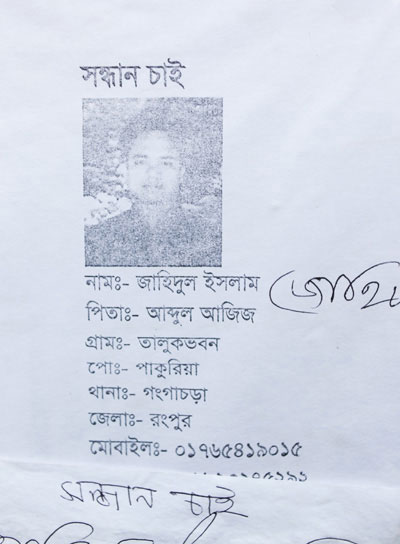 সন্ধান চাই
নামঃ- জাহিদুল ইসলাম
পিতাঃ- আব্দুল আজিজ
গ্রামঃ- তালুকভবন
পোঃ- পাকুরিয়া
থানাঃ- গংগাচড়া
জেলাঃ- রংপুর
মোবাইলঃ- ০১৭৬৫৪১৯০১৫
সন্ধান চাই